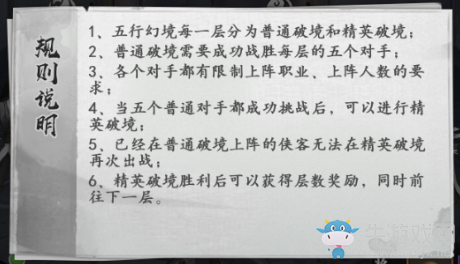 规则说明
1、五行幻境每一层分为普通破境和精英破境；
2、普通破境需要成功战胜每层的五个对手；
3、各个对手都有限制上阵职业、上阵人数的要
求；
4、当五个普通对手都成功挑战后，可以进行精
英破境；
5、已经在普通破境上阵的侠客无法在精英破境
再次出战；
6、精英破境胜利后可以获得层数奖励，同时前
往下一层。